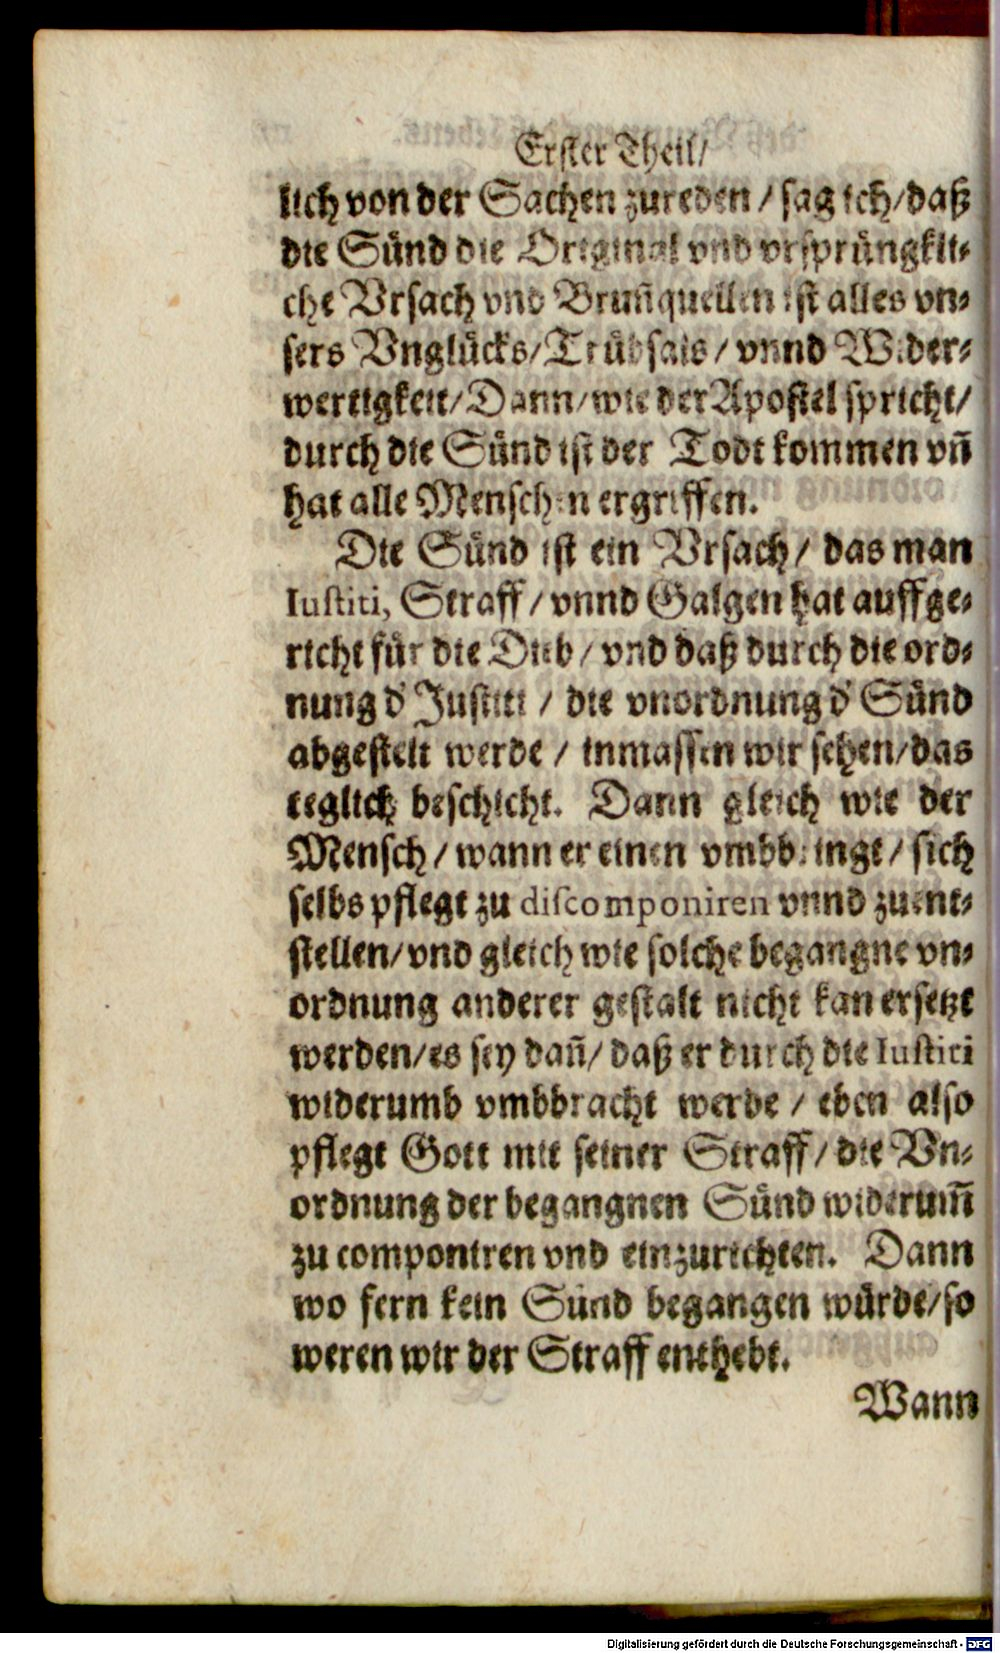 Erster Theil/
lich von der Sachen zureden / sag ich/ daß
die Sünd die Original vnd vrsprüngkli-
che Vrsach vnd Brun̄quellen ist alles vn-
sers Vnglücks/ Trübsals / vnnd Wider-
wertigkeit/ Dann/ wie der Apostel spricht/
durch die Sünd ist der Todt kommen vn̄
hat alle Menschen ergriffen.
Die Sünd ist ein Vrsach / das man
Iustiti, Straff / vnnd Galgen hat auffge-
richt für die Dieb / vnd daß durch die ord-
nung d' Justiti / die vnordnung d' Sünd
abgestelt werde / inmassen wir sehen/ das
teglich beschicht. Dann gleich wie der
Mensch / wann er einen vmbbringt / sich
selbs pflegt zu discomponiren vnnd zuent-
stellen/ vnd gleich wie solche begangne vn-
ordnung anderer gestalt nicht kan ersetzt
werden/ es sey dan̄/ daß er durch die Iustici
widerumb vmbbracht werde / eben also
pflegt Gott mit seiner Straff / die Vn-
ordnung der begangnen Sünd widerum̄
zu componiren vnd einzurichten. Dann
wo fern kein Sünd begangen würde/ so
weren wir der Straff enthebt.
Wann
Digitalisierung gefördert durch die Deutsche Forschungsgemeinschaft - DFG